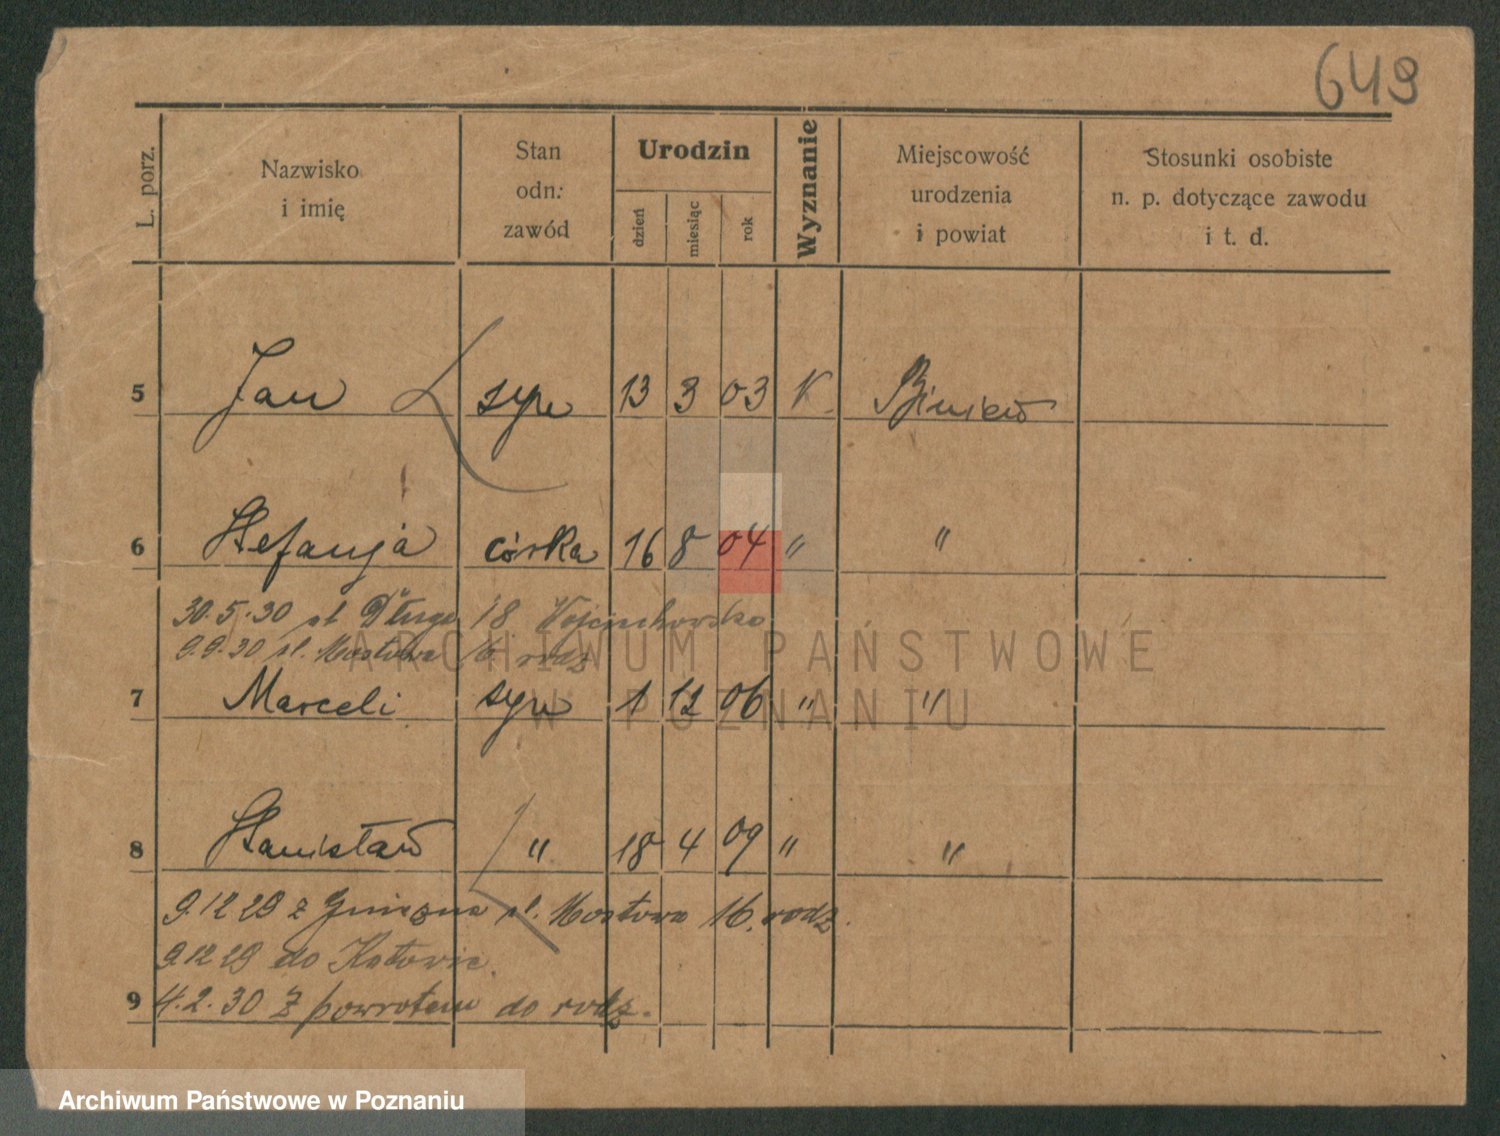 649
L. porz.
Nazwisko i imię
Stan odn. zawód
Urodzin
dzień miesiąc rok
Wyznanie
Miejscowość urodzenia i powiat
Stosunki osobiste n. p. dotyczące zawodu i t. d.
5 Jan syn 13 3 03 K. Biniew
6 Stefanja córka 16 8 04 " "
30.5.30 ul. Długa 18 Wojciechowska
9.9.30 ul. Mostowa 16 rodz
7 Marceli syn 1 12 06 " "
8 Stanisław " 18 4 09 " "
9.12 29 z Gniezna ul. Mostowa 16. rodz.
9.12 29 do Katowic.
9 4.2.30 z powrotem do rodz.
ARCHIWUM PAŃSTWOWE
W POZNANIU
Archiwum Państwowe w Poznaniu